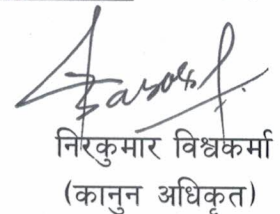 निरकुमार विश्वकर्मा
(कानुन अधिकृत)